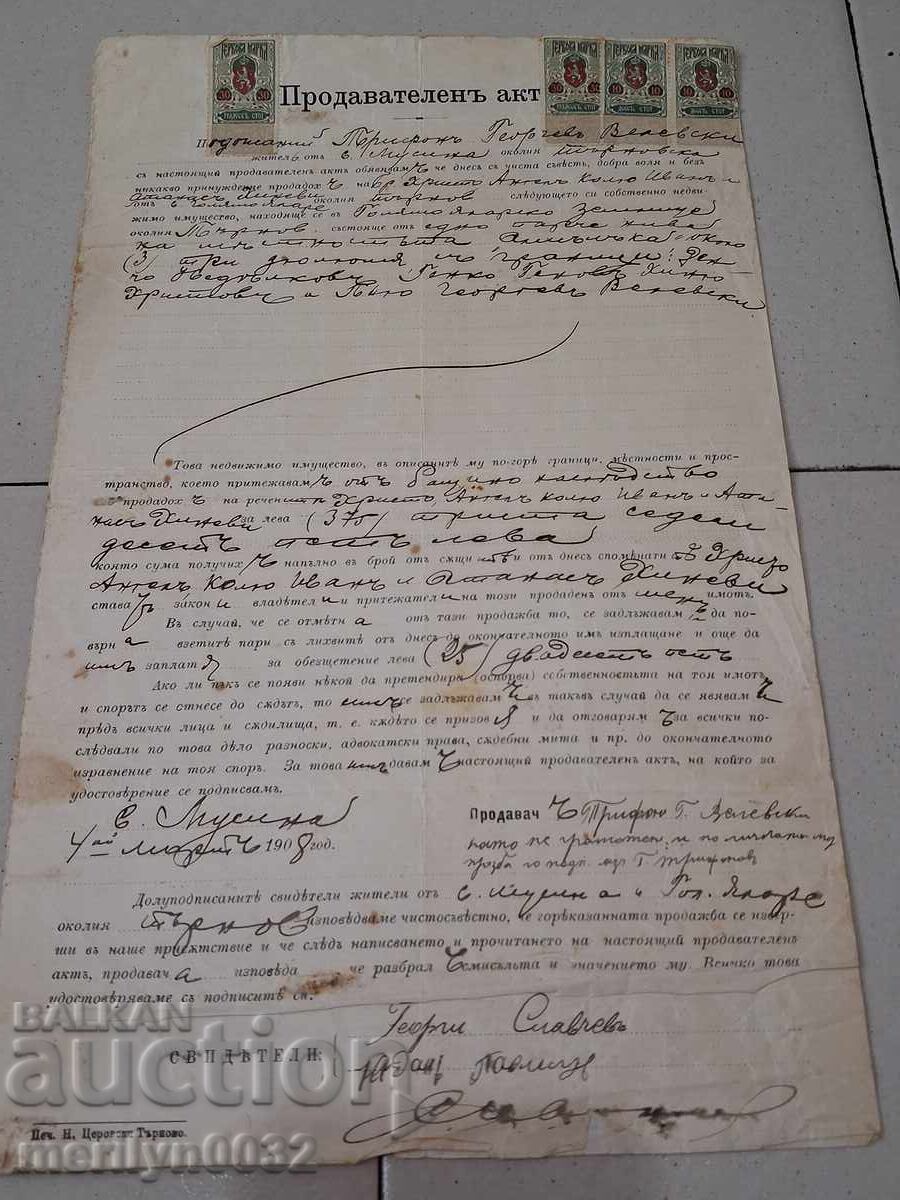 ГЕРБОВА МАРКА ГЕРБОВА МАРКА ГЕРБОВА МАРКА ГЕРБОВА МАРКА
30 30 30 30 10 10 10 10
Продавателенъ актъ
Подписаний Трифонъ Георгевъ Велевски
жителъ отъ с. Мусина околия Търновска
съ настоящий продавателен актъ обявявамъ че днесъ съ чиста съвѣсть, добра воля и безъ
никакво принуждение продадохъ на бр. Христо Ангелъ Колю Иванъ и
Атанасъ Хиневи околия Търнов. следующето си собственно недви-
жимо имущество, находяще се въ Голямо Яларско Землище
околия Търнов. състояще отъ едно парче нива
на мѣстностьта около
(3) три съ граници: Ген-
чо Генко Геновъ, Хиню
Христовъ и Геню Георгевъ Велевски.
Това недвижимо имущество, въ описанитѣ му по-горѣ граници, мѣстности и про-
странство, което притежавамъ отъ бащино наследство
продадохъ на реченитѣ Христо, Ангелъ Колю Иванъ и Ата-
насъ Хиневи за лева (375) триста седем
десетъ петь лева
която сума получихъ напълно въ брой отъ сѫщитѣ и отъ днесъ споменати тѣ Христо
Ангелъ Колю Иванъ и Атанасъ Хиневи
ставатъ законни владѣтели и притежатели на този проданен отъ менъ имотъ.
Въ случай, че се отмѣтна отъ тази продажба то, се задлъжавамъ да по-
върна взетитѣ пари съ лихвитѣ отъ днесъ до окончателното имъ изплащане и още да
имъ заплатя за обезщетение лева (25) двадесеть петь
Ако ли пъкъ се появи нѣкой да претендира (оспорва) собственностьта на тоя имотъ
и спорътъ се отнесе до сѫдътъ, то имъ се задлъжавамъ въ такъвъ случай да се явявамъ
прѣдъ всички лица и сѫдилища, т. е. кѫдето се призовя и да отговарямъ за всички по-
слѣдвали по това дѣло разноски, адвокатски права, сѫдебни мита и пр. до окончателното
изравнение на тоя споръ. За това имъ давамъ настоящий продавателен актъ, на който за
удостовѣрение се подписвамъ.
с. Мусина
4ий мартъ 1908 год.
Продавачъ Трифон Г. Велевски
като не грамотен, и по личната му
прозба го подп. азъ Г. Трифоновъ
Долуподписанитѣ свидѣтели жители отъ с. Мусина и Гол. Яларе
околия Търнов изповѣдваме чистосъвѣстно, че горѣказанната продажба се извър-
ши въ наше прижтствие и че слѣдъ написването и прочитането на настоящий продавателенъ
актъ, продавача изповѣда че разбралъ смисълъта и значението му. Всичко това
удостовѣряваме съ подписитѣ си.
СВИДѢТЕЛИ:
Георги Славчевъ
Печ. Н. Церовски Търново.
BALKAN
auction
merilyn0032